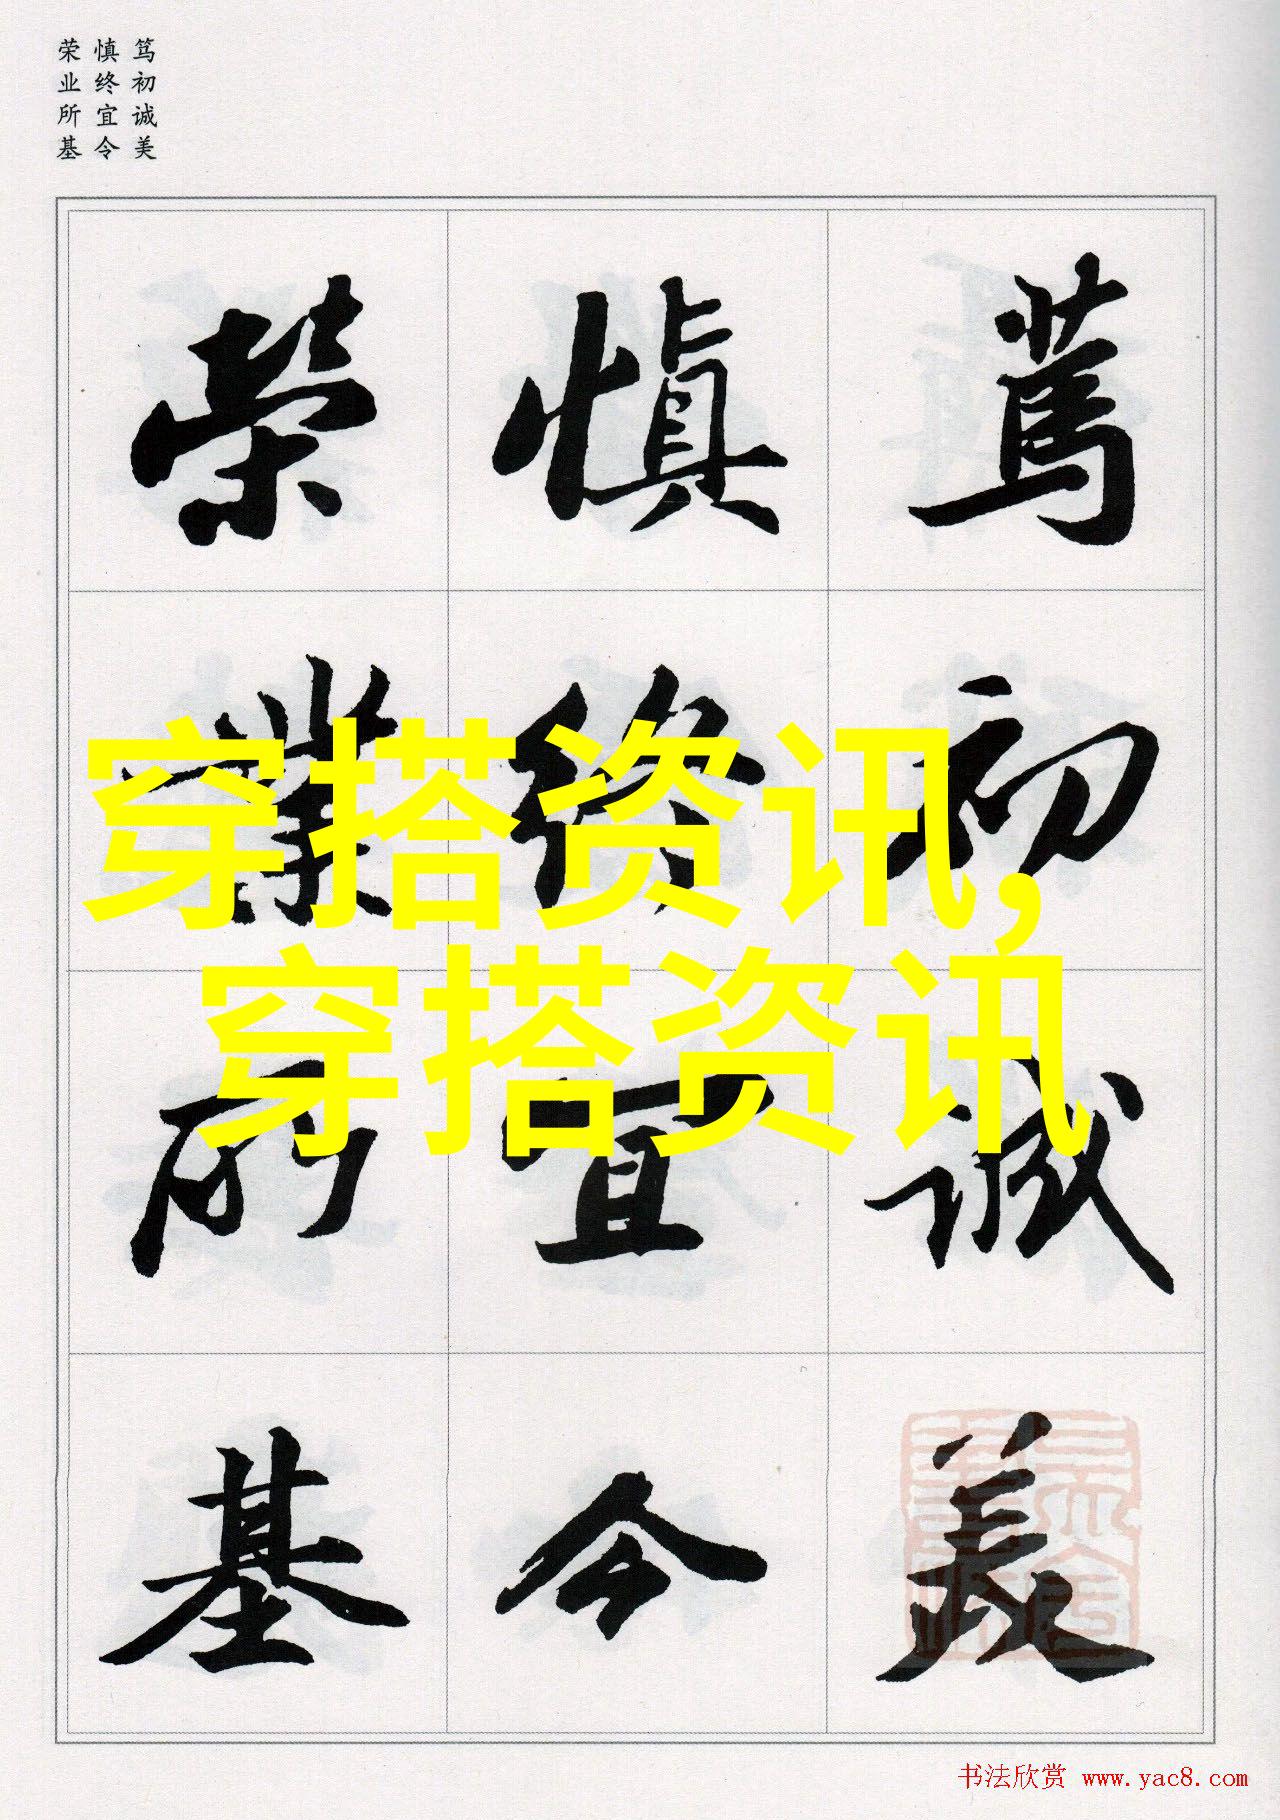 笃初诚美
慎终宜令
荣业所基
篤初誠美
慎終宜令
榮業所基
穿搭资讯,
穿搭资讯
书法欣赏 www.yac8.com